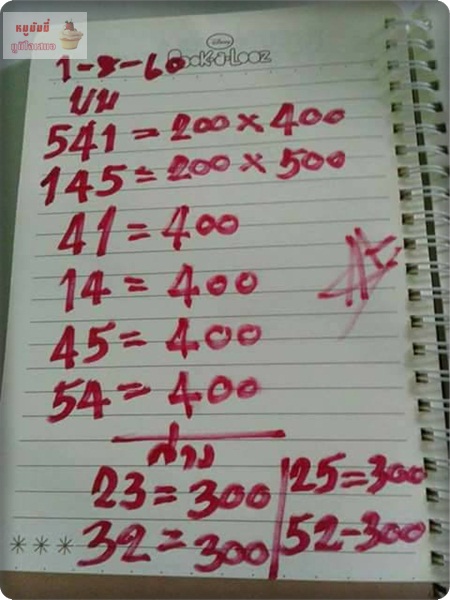 หมูบ้นขี่
Disney
Book-a-Looz
1-8-60
บน
541=200×400
145=200×500
41=400
14=400
45=400
54=400
ล่าง
23=300
32=300
25=300
52-300
***